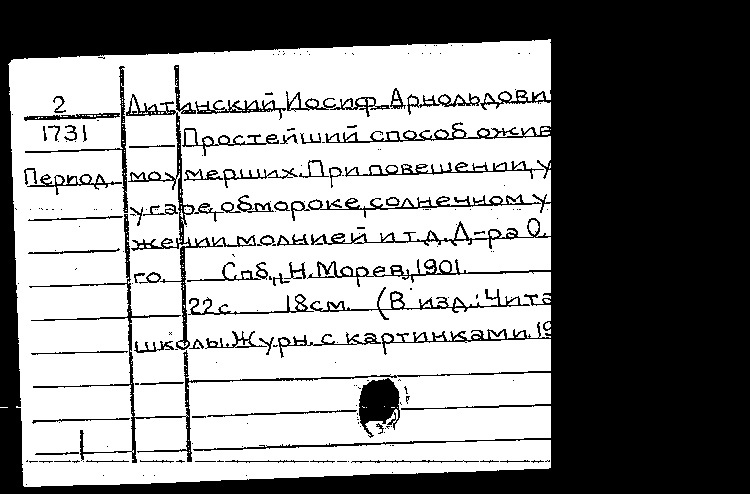 2 Литинский, Иосиф Арнольдови
1731 Простейший способ ожив
Период. моу мерших. При повешении, у
угаре, обмороке, солнечном у
жении молнией и т.д. Д-ра О.
го. Спб., Н. Морев, 1901.
22с. 18см. (В изд.: Чита
школы. Журн. с картинками. 19